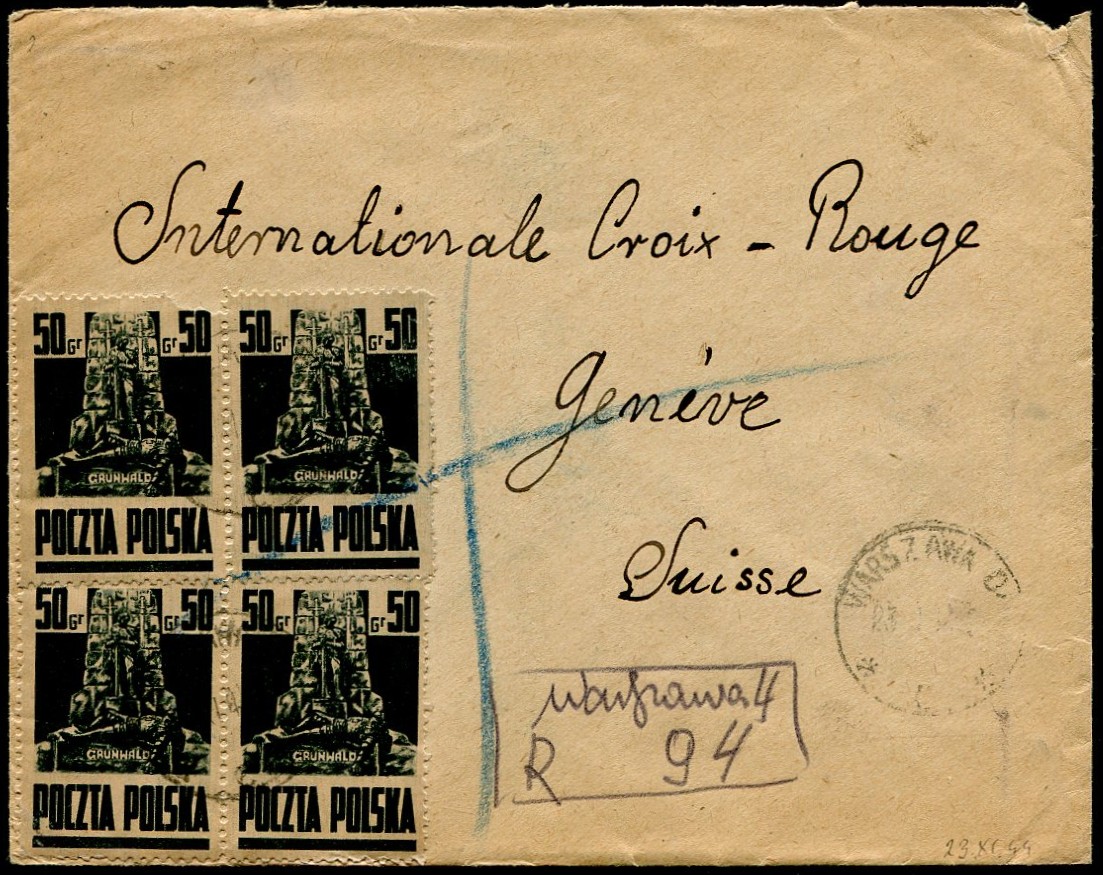 Internationale Croix - Rouge
Genève
Suisse
50 Gr Gr 50
GRUNWALD
POCZTA POLSKA
50 Gr Gr 50
GRUNWALD
POCZTA POLSKA
50 Gr Gr 50
GRUNWALD
POCZTA POLSKA
50 Gr Gr 50
GRUNWALD
POCZTA POLSKA
WARSZAWA
Warszawa 4
R 94